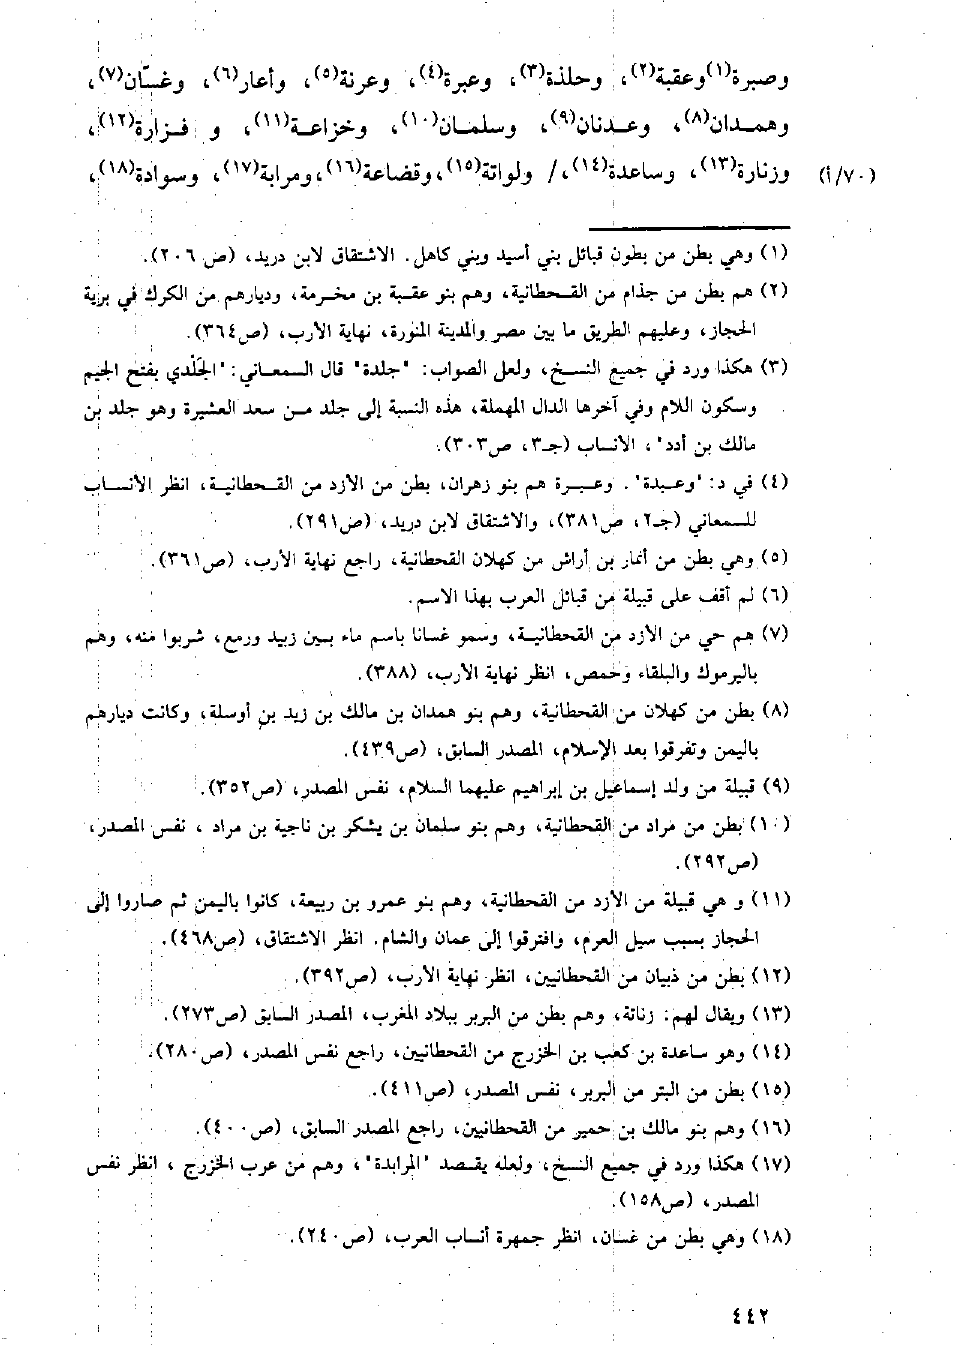 وصبرة(١)وعقبة(٢)، وحلذة(٣)، وعبرة(٤)، وعرنة(٥)، وأعار(٦)، وغسّان(٧)،
وهمـدان(٨)، وعـدنان(٩)، وسلمـان(١٠)، وخزاعـة(١١)، و فـزارة(١٢)،
(٧٠/أ) وزنارة(١٣)، وساعدة(١٤)،/ ولواتة(١٥)،وقضاعة(١٦)،ومرابة(١٧)، وسوادة(١٨)،
(١) وهي بطن من بطون قبائل بني أسيد وبني كاهل. الاشتقاق لابن دريد، (ص٢٠٦).
(٢) هم بطن من جذام من القـحطانية، وهم بنو عقـبة بن مخـرمة، وديارهم من الكرك في برية
الحجاز، وعليهم الطريق ما بين مصر والمدينة المنورة، نهاية الأرب، (ص٣٦٤).
(٣) هكذا ورد في جميع النسـخ، ولعل الصواب: "جلدة" قال السمعـاني: "الجَلْدي بفتح الجيم
وسكون اللام وفي آخرها الدال المهملة، هذه النسبة إلى جلد مـن سعد العشيرة وهو جلد بن
مالك بن أدد"، الأنساب (جـ٣، ص٣٠٣).
(٤) في د: "وعـبدة". وعـبـرة هم بنو زهران، بطن من الأزد من القـحطانيـة، انظر الأنسـاب
للسمعاني (جـ٢، ص٣٨١)، والاشتقاق لابن دريد، (ص٢٩١).
(٥) وهي بطن من أنمار بن أراش من كهلان القحطانية، راجع نهاية الأرب، (ص٣٦١).
(٦) لم أقف على قبيلة من قبائل العرب بهذا الاسم.
(٧) هم حي من الأزد من القحطانيـة، وسمو غسانا باسم ماء بـين زبيد ورمع، شربوا منه، وهم
باليرموك والبلقاء وحمص، انظر نهاية الأرب، (٣٨٨).
(٨) بطن من كهلان من القحطانية، وهم بنو همدان بن مالك بن زيد بن أوسلة، وكانت ديارهم
باليمن وتفرقوا بعد الإسلام، المصدر السابق، (ص٤٣٩).
(٩) قبيلة من ولد إسماعيل بن إبراهيم عليهما السلام، نفس المصدر، (ص٣٥٢).
(١٠) بطن من مراد من القحطانية، وهم بنو سلمان بن يشكر بن ناجية بن مراد ، نفس المصدر،
(ص٢٩٢).
(١١) و هي قبيلة من الأزد من القحطانية، وهم بنو عمرو بن ربيعة، كانوا باليمن ثم صاروا إلى
الحجاز بسبب سيل العرم، وافترقوا إلى عمان والشام. انظر الاشتقاق، (ص٤٦٨).
(١٢) بطن من ذبيان من القحطانيين، انظر نهاية الأرب، (ص٣٩٢).
(١٣) ويقال لهم: زناتة، وهم بطن من البربر ببلاد المغرب، المصدر السابق (ص٢٧٣).
(١٤) وهو ساعدة بن كعب بن الخزرج من القحطانيين، راجع نفس المصدر، (ص٢٨٠).
(١٥) بطن من البتر من البربر، نفس المصدر، (ص٤١١).
(١٦) وهم بنو مالك بن حمير من القحطانيين، راجع المصدر السابق، (ص٤٠٠).
(١٧) هكذا ورد في جميع النسخ، ولعله يقـصد "المرابدة"، وهم من عرب الخزرج ، انظر نفس
المصدر، (ص١٥٨).
(١٨) وهي بطن من غسان، انظر جمهرة أنساب العرب، (ص٢٤٠).
٤٤٢